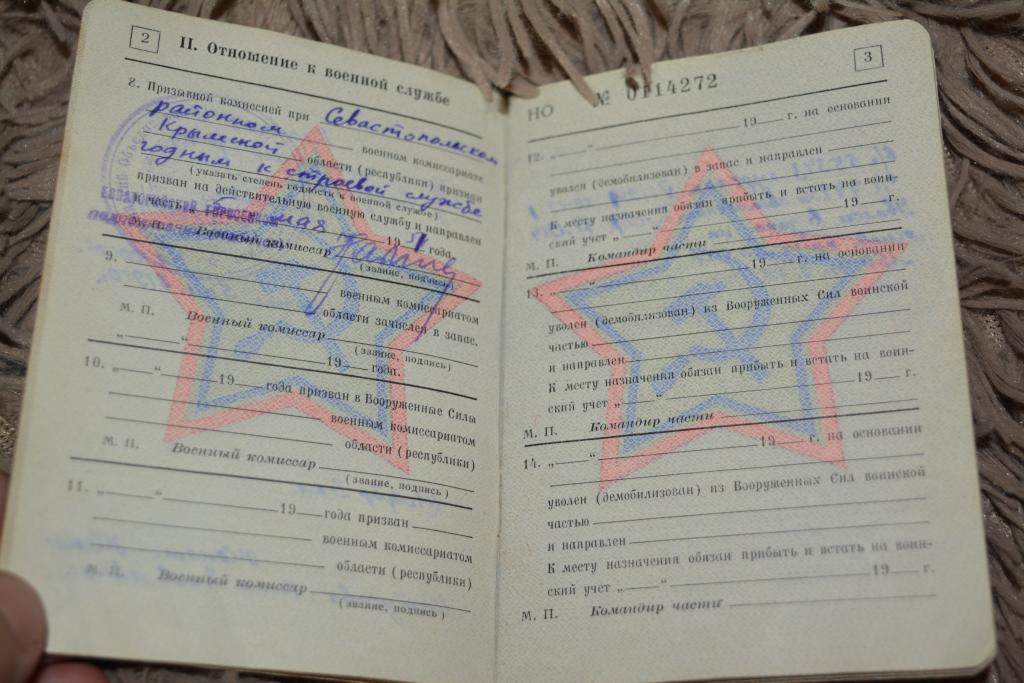 2
II. Отношение к военной службе
8. Призывной комиссией при Севастопольском
районном военном комиссариате
Крымской области (республики) признан
годным к строевой службе
(указать степень годности к военной службе)
призван на действительную военную службу и направлен
в часть мая 1951 года
Военный комиссар
(звание, подпись)
9.
военным комиссариатом
области зачислен в запас.
М. П. Военный комиссар
(звание, подпись)
„ “ 19 года.
10. „ “ 19 года призван в Вооруженные Силы
военным комиссариатом
области (республики)
М. П. Военный комиссар
(звание, подпись)
11. „ “
19 года призван
военным комиссариатом
области (республики)
М. П. Военный комиссар
(звание, подпись)
3
НО № 0114272
12. „ “ 19 г. на основании
уволен (демобилизован) в запас и направлен
К месту назначения обязан прибыть и встать на воин-
ский учет „ “ 19 г.
М. П. Командир части
13. „ “ 19 г. на основании
уволен (демобилизован) из Вооруженных Сил воинской
частью
и направлен
К месту назначения обязан прибыть и встать на воин-
ский учет „ “ 19 г.
М. П. Командир части
14. „ “ 19 г. на основании
уволен (демобилизован) из Вооруженных Сил воинской
частью
и направлен
К месту назначения обязан прибыть и встать на воин-
ский учет „ “ 19 г.
М. П. Командир части